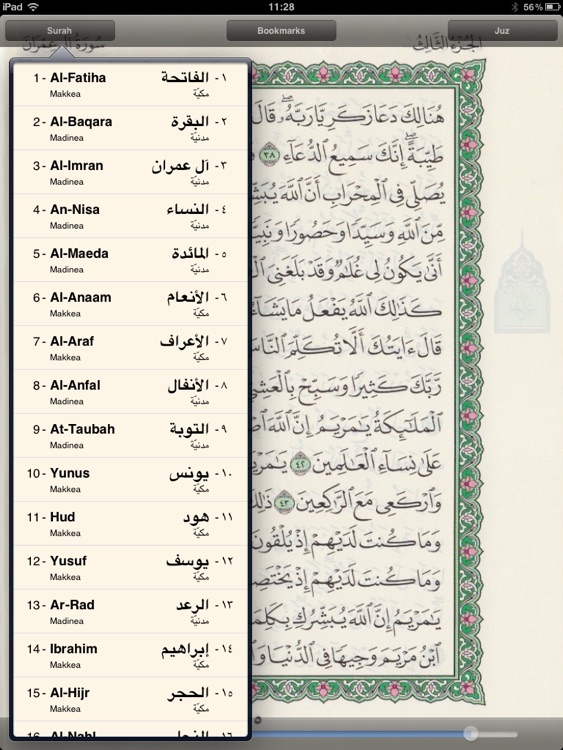 iPad 11:28 56%
Surah Bookmarks Juz
سُورَةُ آلِ عِمْرَانَ الجُزْءُ الثَّالِثُ
1 - Al-Fatiha الفاتحة - ١
Makkea مكيّة
2 - Al-Baqara البقرة - ٢
Madinea مدنيّة
3 - Al-Imran آل عمران - ٣
Madinea مدنيّة
4 - An-Nisa النساء - ٤
Madinea مدنيّة
5 - Al-Maeda المائدة - ٥
Madinea مدنيّة
6 - Al-Anaam الأنعام - ٦
Makkea مكيّة
7 - Al-Araf الأعراف - ٧
Makkea مكيّة
8 - Al-Anfal الأنفال - ٨
Madinea مدنيّة
9 - At-Taubah التوبة - ٩
Madinea مدنيّة
10 - Yunus يونس - ١٠
Makkea مكيّة
11 - Hud هود - ١١
Makkea مكيّة
12 - Yusuf يوسف - ١٢
Makkea مكيّة
13 - Ar-Rad الرعد - ١٣
Madinea مدنيّة
14 - Ibrahim إبراهيم - ١٤
Makkea مكيّة
15 - Al-Hijr الحجر - ١٥
Makkea مكيّة
16 - Al-Nahl النحل - ١٦
هُنَالِكَ دَعَا زَكَرِيَّا رَبَّهُۥ قَالَ
طَيِّبَةً إِنَّكَ سَمِيعُ ٱلدُّعَآءِ ٣٨
يُصَلِّى فِى ٱلْمِحْرَابِ أَنَّ ٱللَّهَ
مِّنَ ٱللَّهِ وَسَيِّدًا وَحَصُورًا
أَنَّىٰ يَكُونُ لِى غُلَٰمٌ وَقَدْ بَلَغَنِىَ
كَذَٰلِكَ ٱللَّهُ يَفْعَلُ مَا يَشَآءُ
قَالَ ءَايَتُكَ أَلَّا تُكَلِّمَ ٱلنَّاسَ
رَّبَّكَ كَثِيرًا وَسَبِّحْ بِٱلْعَشِىِّ
ٱلْمَلَٰٓئِكَةُ يَٰمَرْيَمُ إِنَّ ٱللَّهَ
عَلَىٰ نِسَآءِ ٱلْعَٰلَمِينَ ٤٢
وَٱرْكَعِى مَعَ ٱلرَّٰكِعِينَ ٤٣ ذَٰلِكَ
وَمَا كُنتَ لَدَيْهِمْ إِذْ يُلْقُونَ
وَمَا كُنتَ لَدَيْهِمْ إِذْ
يَٰمَرْيَمُ إِنَّ ٱللَّهَ يُبَشِّرُكِ بِكَلِمَةٍ
ٱبْنُ مَرْيَمَ وَجِيهًا فِى ٱلدُّنْيَا